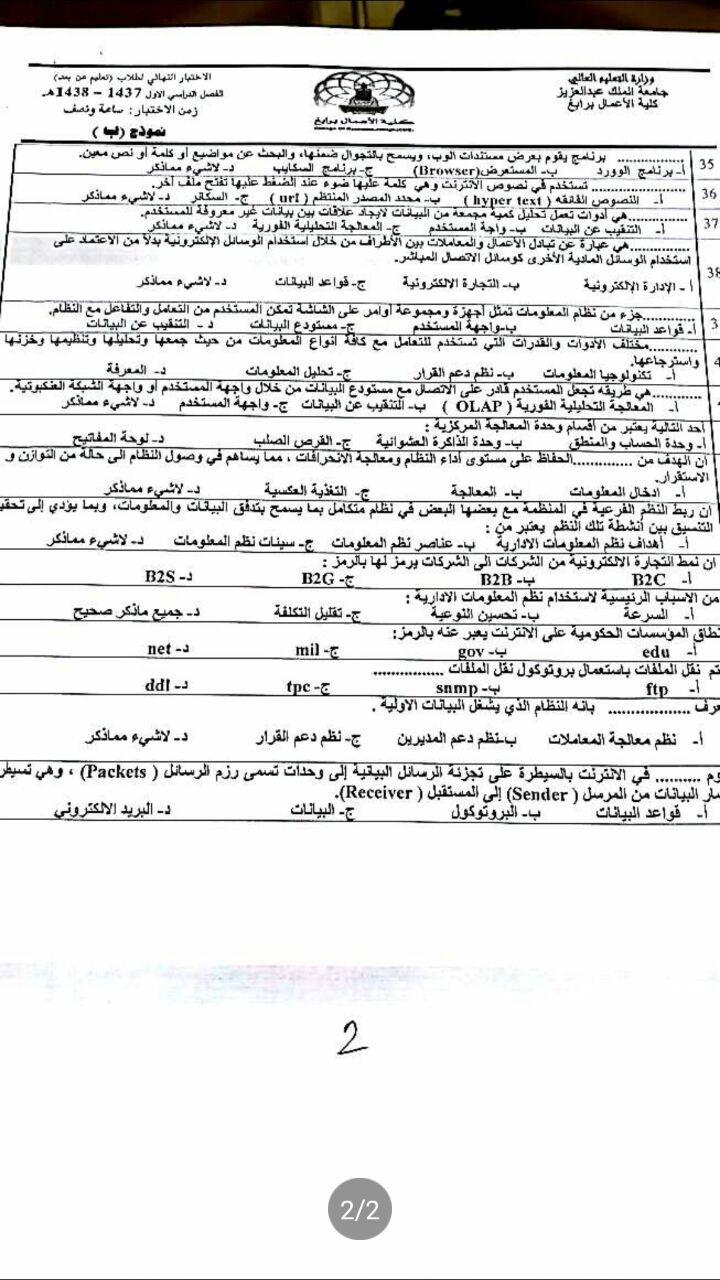 وزارة التعليم العالي
جامعة الملك عبدالعزيز
كلية الأعمال برابغ
كلية الأعمال برابغ
الاختبار النهائي لطلاب (تعليم عن بعد)
الفصل الدراسي الاول 1437 – 1438هـ
زمن الاختبار: ساعة ونصف
نموذج (ب)
35 ............... برنامج يقوم بعرض مستندات الوب، ويسمح بالتجوال ضمنها، والبحث عن مواضيع أو كلمة أو نص معين.
أ- برنامج الوورد ب- المستعرض(Browser) ج- برنامج السكايب د- لاشيء مماذكر
36 ............... تستخدم في نصوص الانترنت وهي كلمة عليها ضوء عند الضغط عليها تفتح ملف آخر.
أ- النصوص الفائقه ( hyper text ) ب- محدد المصدر المنتظم ( url ) ج- السكانر د- لاشيء مماذكر
37 ............هي أدوات تعمل تحليل كمية مجمعة من البيانات لايجاد علاقات بين بيانات غير معروفة للمستخدم.
أ- التنقيب عن البيانات ب- واجة المستخدم ج- المعالجة التحليلية الفورية د- لاشيء مماذكر
38 ............هي عبارة عن تبادل الأعمال والمعاملات بين الأطراف من خلال استخدام الوسائل الإلكترونية بدلاً من الاعتماد على
استخدام الوسائل المادية الأخرى كوسائل الاتصال المباشر.
أ - الإدارة الإلكترونية ب- التجارة الالكترونية ج- قواعد البيانات د- لاشيء مماذكر
3 ............جزء من نظام المعلومات تمثل أجهزة ومجموعة أوامر على الشاشة تمكن المستخدم من التعامل والتفاعل مع النظام.
أ- قواعد البيانات ب-واجهة المستخدم ج- مستودع البيانات د - التنقيب عن البيانات
4 ............مختلف الأدوات والقدرات التي تستخدم للتعامل مع كافة انواع المعلومات من حيث جمعها وتحليلها وتنظيمها وخزنها
واسترجاعها.
أ- تكنولوجيا المعلومات ب- نظم دعم القرار ج- تحليل المعلومات د- المعرفة
............هي طريقه تجعل المستخدم قادر على الاتصال مع مستودع البيانات من خلال واجهة المستخدم أو واجهة الشبكة العنكبوتية.
أ- المعالجة التحليلية الفورية ( OLAP ) ب- التنقيب عن البيانات ج- واجهة المستخدم د- لاشيء مماذكر
أحد التالية يعتبر من أقسام وحدة المعالجة المركزية :
أ- وحدة الحساب والمنطق ب- وحدة الذاكرة العشوائية ج- القرص الصلب د- لوحة المفاتيح
ان الهدف من .............الحفاظ على مستوى أداء النظام ومعالجة الانحرافات ، مما يساهم في وصول النظام الى حالة من التوازن و
الاستقرار.
أ- ادخال المعلومات ب- المعالجة ج- التغذية العكسية د- لاشيء مماذكر
ان ربط النظم الفرعية في المنظمة مع بعضها البعض في نظام متكامل بما يسمح بتدفق البيانات والمعلومات، وبما يؤدي إلى
التنسيق بين أنشطة تلك النظم يعتبر من :
أ- أهداف نظم المعلومات الادارية ب- عناصر نظم المعلومات ج- سيئات نظم المعلومات د- لاشيء مماذكر
ان نمط التجارة الالكترونية من الشركات الى الشركات يرمز لها بالرمز:
أ- B2C ب- B2B ج- B2G د- B2S
من الاسباب الرئيسية لاستخدام نظم المعلومات الادارية :
أ- السرعة ب- تحسين النوعية ج- تقليل التكلفة د- جميع ماذكر صحيح
نطاق المؤسسات الحكومية على الانترنت يعبر عنه بالرمز:
أ- edu ب- gov ج- mil د- net
تم نقل الملفات باستعمال بروتوكول نقل الملفات ................
أ- ftp ب- snmp ج- tpc د- ddl
................ بانه النظام الذي يشغل البيانات الاولية .
أ- نظم معالجة المعاملات ب-نظم دعم المديرين ج- نظم دعم القرار د- لاشيء مماذكر
.......... في الانترنت بالسيطرة على تجزئة الرسائل البيانية إلى وحدات تسمى رزم الرسائل ( Packets ) ، وهي
البيانات من المرسل ( Sender ) إلى المستقبل ( Receiver ).
أ- قواعد البيانات ب- البروتوكول ج- البيانات د- البريد الالكتروني
2
2/2